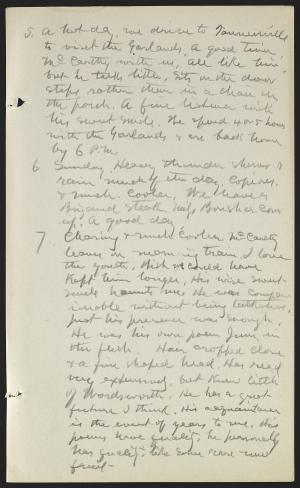 5. A hot day, we drive to Tannersville
to visit the Garlands. A good time.
McCarthy with us, all like him,
but he talks little, sits on the door
steps rather than in a chair on
the porch. A fine listener with
his sweet smile. We spend 4 or 5 hours
with the Garlands & are back home
by 6 P.M.
6 Sunday. Heavy thunder shower &
rain much of the day, copious,
& much cooler. We have a
Brigand steak, Miss Boucher comes
up. A good day.
7 Clearing & much cooler. McCarthy
leaves on morning train. I love
the youth, wish we could have
kept him longer, his wise sweet
smile haunts me. He was companionable
without being talkative,
just his presence was enough.
He was his own poem June in
the flesh. Hair cropped close
& a fine shaped head. Has read
very extensively, but knew little
of Wordsworth. He has a great
future I think. His acquaintance
is the event of years to me. His
poems have quality, he personally
has quality like some rare
fruit